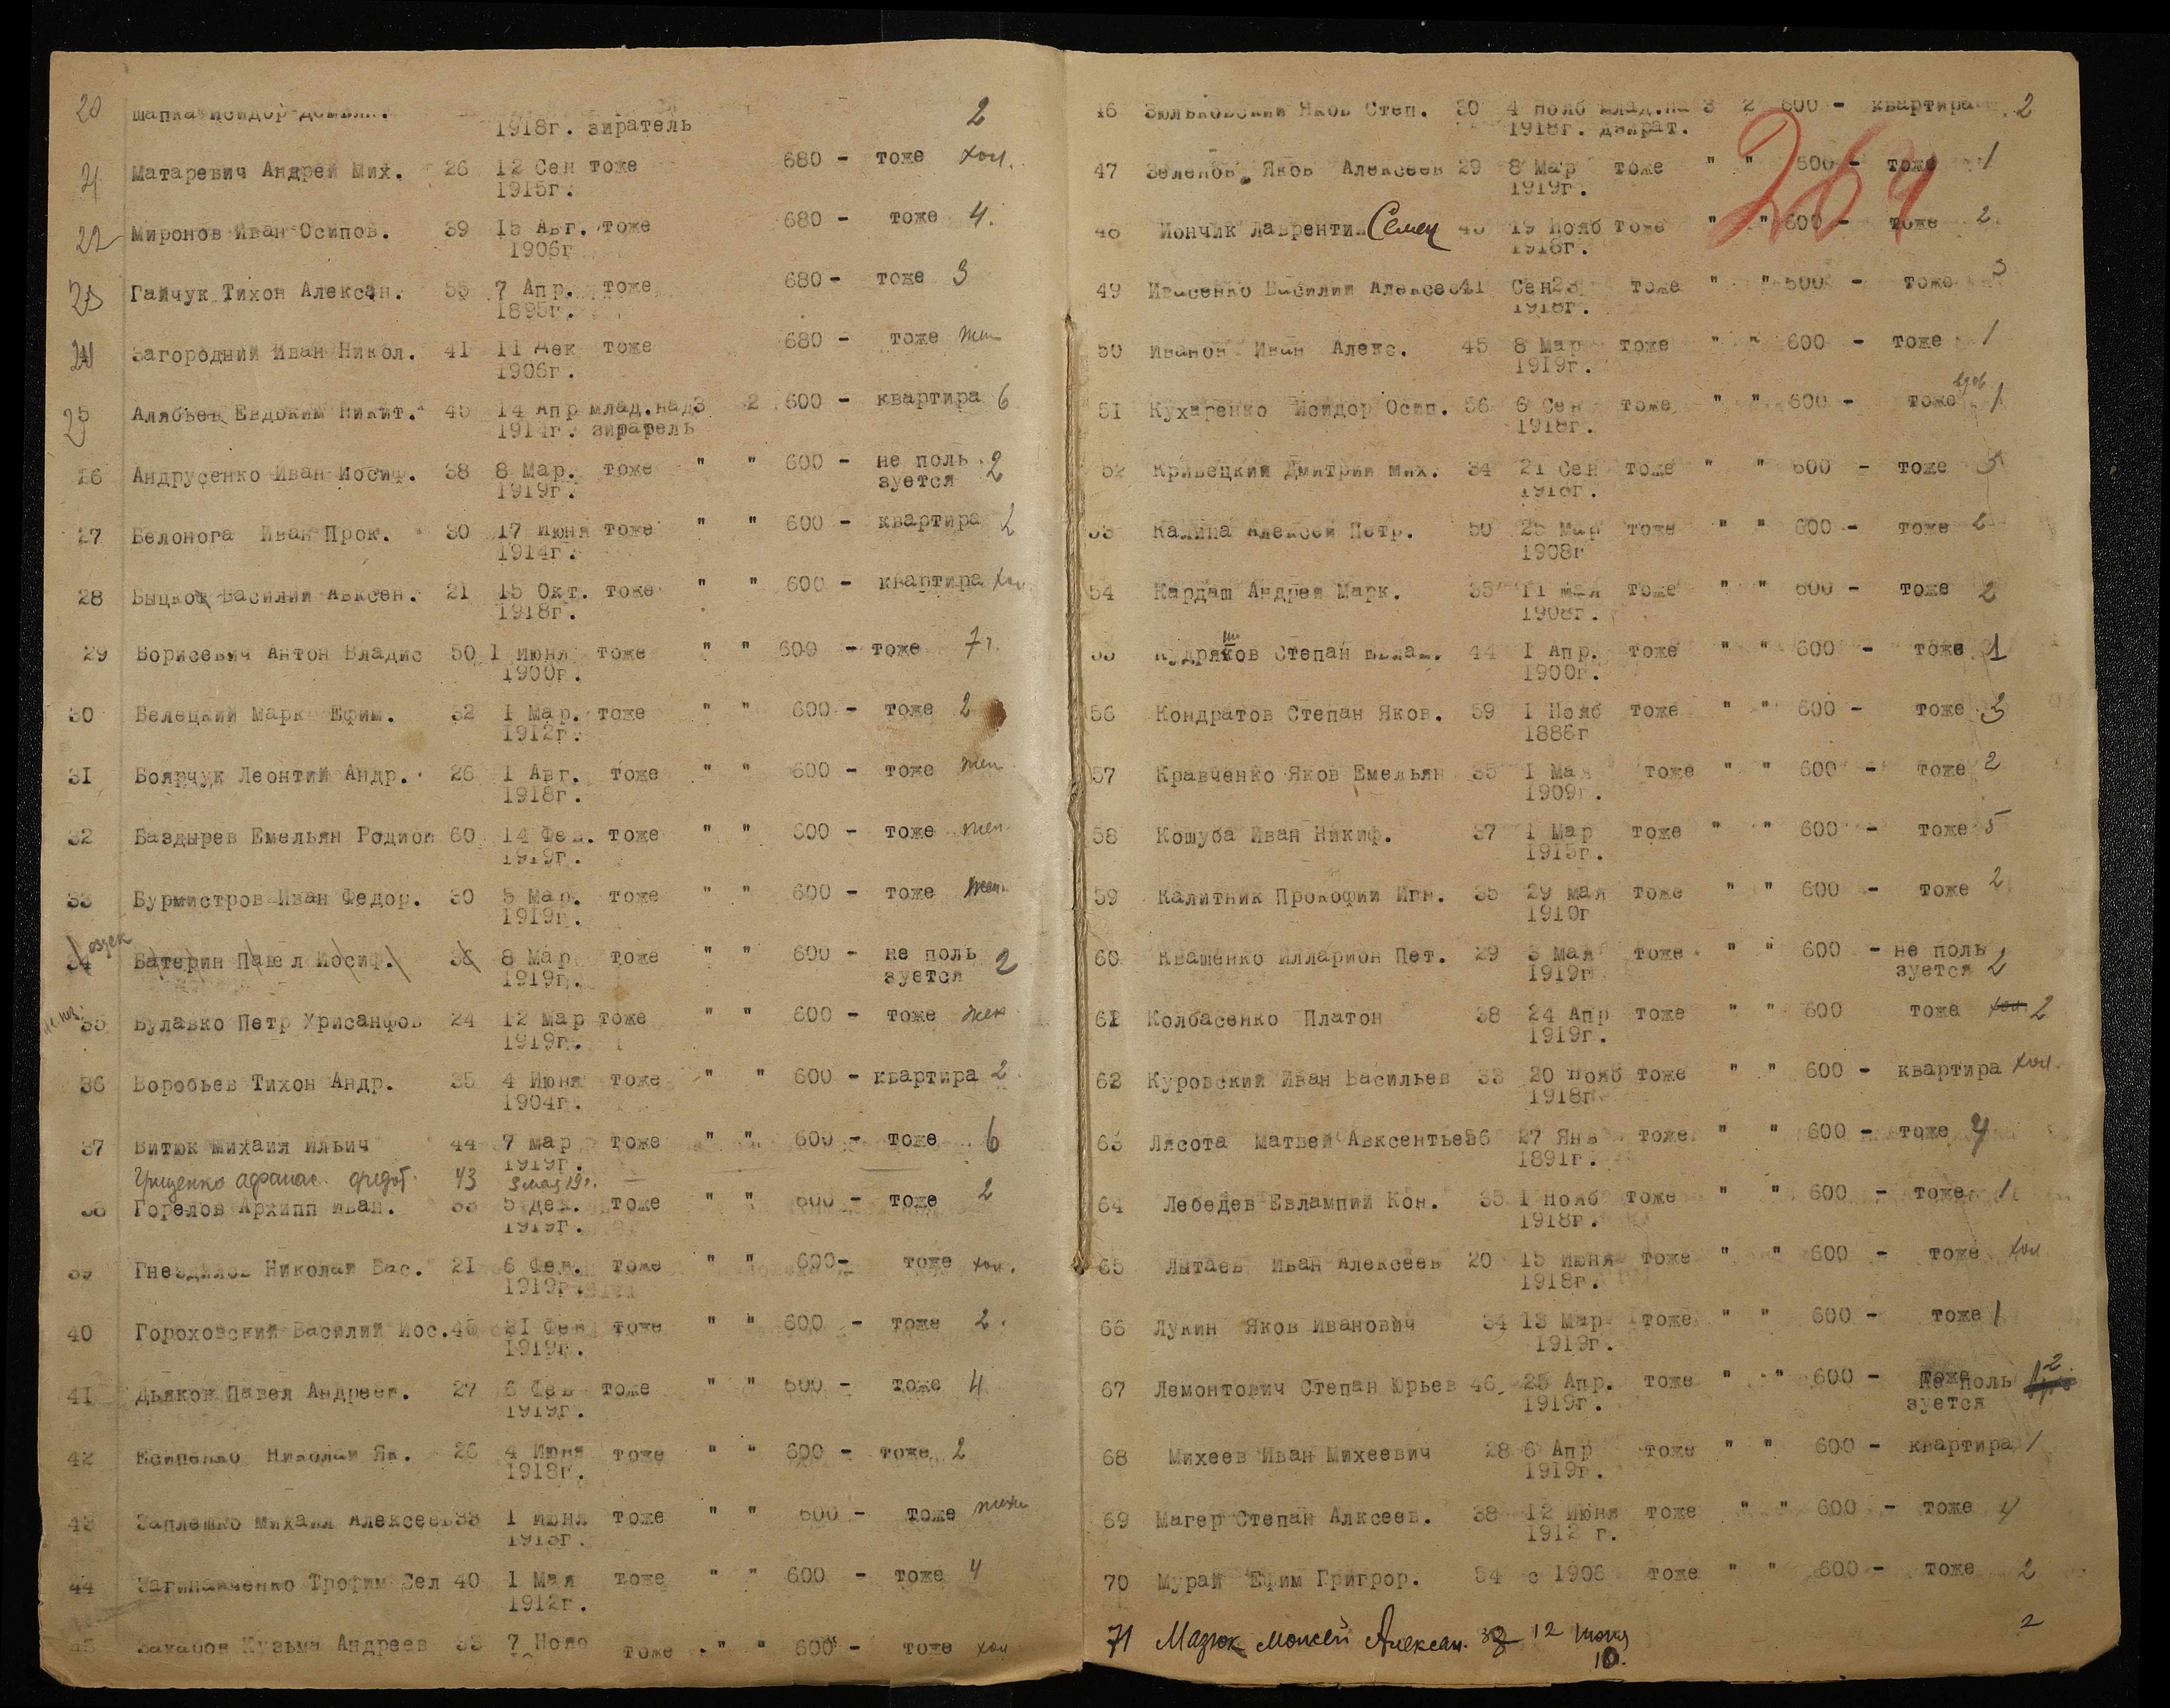 20 Шапка Исидор Демьян. 1918г. зиратель 2
21 Матаревич Андрей Мих. 26 12 Сен тоже 680 - тоже хол.
1915г.
22 Миронов Иван Осипов. 39 15 Авг. тоже 680 - тоже 4.
1906г
23 Гайчук Тихон Алексан. 55 7 Апр. тоже 680 - тоже 3
1895г.
24 Загородний Иван Никол. 41 11 Дек тоже 680 - тоже жен
1906г.
25 Алябьев Евдоким Никит. 45 14 Апр млад.над 3 2 600 - квартира 6
1914г. зиратель
26 Андрусенко Иван Иосиф. 38 8 Мар. тоже " " 600 - не поль 2
1919г. зуется
27 Белонога Иван Прок. 30 17 Июня тоже " " 600 - квартира 2
1914г.
28 Быцков Василий Авксен. 21 15 Окт. тоже " " 600 - квартира хол
1918г.
29 Борисевич Антон Владис 50 1 Июня тоже " " 600 - тоже 7
1900г.
30 Белецкий Марк Ефим. 32 1 Мар. тоже " " 600 - тоже 2
1912г.
31 Боярчук Леонтий Андр. 26 1 Авг. тоже " " 600 - тоже жен
1918г.
32 Баздырев Емельян Родион 60 14 Фев. тоже " " 600 - тоже жен.
1919г.
33 Бурмистров Иван Федор. 30 5 Мар. тоже " " 600 - тоже жен.
1919г.
34 Батерин Павел Иосиф. 8 Мар тоже " " 600 - не поль 2
1919г. зуется
35 Булавко Петр Хрисанфов 24 12 Мар тоже " " 600 - тоже жен
1919г.
36 Воробьев Тихон Андр. 35 4 Июня тоже " " 600 - квартира 2
1904г.
37 Витюк Михаил Ильич 44 7 Мар тоже " " 600 - тоже 6
1919г.
Грищенко Афанас. Федот. 43 3 мая 19г.
38 Горелов Архипп Иван. 33 5 Дек. тоже " " 600 - тоже 2
1919г.
39 Николай Вас. 21 6 Фев. тоже " " 600- тоже хол.
1919г.
40 Гороховский Василий Иос. 21 Фев тоже " " 600 - тоже 2.
1919г.
41 Дьяков Павел Андреев. 27 6 Фев тоже " " 600 - тоже 4
1919г.
42 Есипенко Николай Як. 26 4 Июня тоже " " 600 - тоже 2
1918г.
43 Заплешко Михаил Алексеев 33 1 Июня тоже " " 600 - тоже
44 Трофим Сел 40 1 Мая тоже " " 600 - тоже 4
1912г.
45 Захаров Кузьма Андреев 33 7 Нояб тоже " " 600 - тоже хол
269
46 Зюльковский Яков Степ. 30 4 Нояб млад.на 3 2 600 - квартира 2
1918г. дзират.
47 Зеленов Яков Алексеев 29 8 Мар тоже " " 600 - тоже 1
1919г.
48 Иончик Лаврентий Семен 19 Нояб тоже " " 600 - тоже 2
1918г.
49 Ивасенко Василий Алексеев 41 Сен 23 тоже " " 600 - тоже 3
1918г.
50 Иванов Иван Алекс. 45 8 Мар тоже " " 600 - тоже 1
1919г.
51 Кухаренко Исидор Осип. 56 6 Сен тоже " " 600 - тоже вдов 1
1918г.
52 Кривецкий Дмитрий Мих. 34 21 Сен тоже " " 600 - тоже
1918г.
53 Калина Алексей Петр. 50 25 Мар тоже " " 600 - тоже
1908г
54 Кардаш Андрей Марк. 35 11 Мая тоже " " 600 - тоже 2
1908г.
55 Кудряшов Степан 44 1 Апр. тоже " " 600 - тоже 1
1900г.
56 Кондратов Степан Яков. 59 1 Нояб тоже " " 600 - тоже 3
1886г
57 Кравченко Яков Емельян 35 1 Мая тоже " " 600 - тоже 2
1909г.
58 Кошуба Иван Никиф. 37 1 Мар тоже " " 600 - тоже 5
1915г.
59 Калитник Прокофий Игн. 35 29 Мая тоже " " 600 - тоже 2
1910г
60 Квашенко Илларион Пет. 29 3 Мая тоже " " 600 - не поль 2
1919г зуется
61 Колбасенко Платон 38 24 Апр тоже " " 600 тожа 2
1919г.
62 Куровский Иван Васильев 33 20 Нояб тоже " " 600 - квартира хол.
1918г
63 Лясота Матвей Авксентьев 56 27 Янв тоже " " 600 - тоже 4
1891г.
64 Лебедев Евлампий Кон. 35 1 Нояб тоже " " 600 - тоже 1
1918г.
65 Лытаев Иван Алексеев 20 15 Июня тоже " " 600 - тоже хол
1918г.
66 Лукин Яков Иванович 34 13 Мар тоже " " 600 - тоже 1
1919г.
67 Лемонтович Степан Юрьев 46 25 Апр. тоже " " 600 - не поль 2
1919г. зуется
68 Михеев Иван Михеевич 28 6 Апр тоже " " 600 - квартира 1
1919г.
69 Магер Степан Алксеев. 38 12 Июня тоже " " 600 - тоже 4
1912 г.
70 Мурай Ефим Григрор. 54 с 1906 тоже " " 600 - тоже 2
71 Мазюк Моисей Алексан. 12 Июня 2
10.